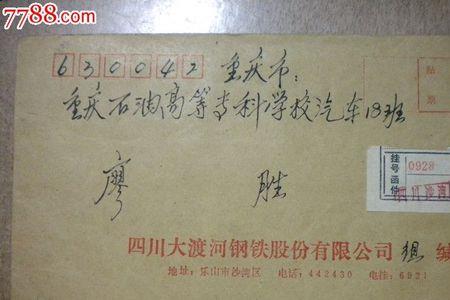 7788.com
630042 重庆市：
重庆石油高等专科学校汽车18班
贴
票
挂号函件
0928
四川沙湾
廖 胜
四川大渡河钢铁股份有限公司
编
地址：乐山市沙湾区 电话：442430 电挂：6921